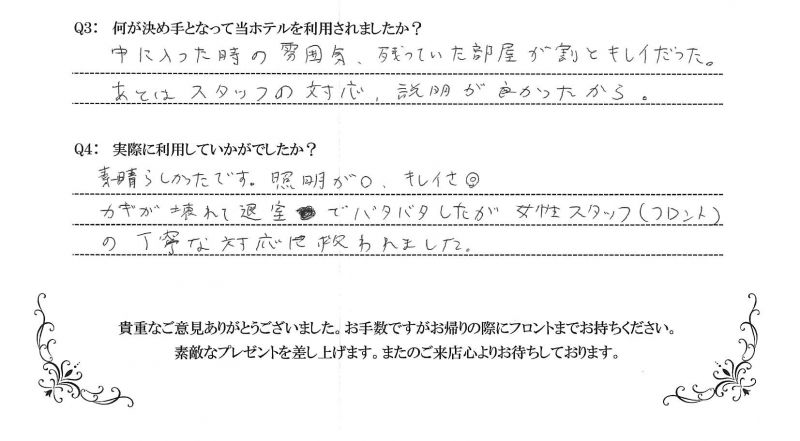 Q3: 何が決め手となって当ホテルを利用されましたか？
中に入った時の雰囲気、残っていた部屋が割とキレイだった。
あとは スタッフの対応、説明が良かったから。
Q4: 実際に利用していかがでしたか？
素晴らしかったです。照明が○、キレイさ◎
カギが壊れて退室でバタバタしたが 女性スタッフ(フロント)
の丁寧な対応に救われました。
貴重なご意見ありがとうございました。お手数ですがお帰りの際にフロントまでお持ちください。
素敵なプレゼントを差し上げます。またのご来店心よりお待ちしております。